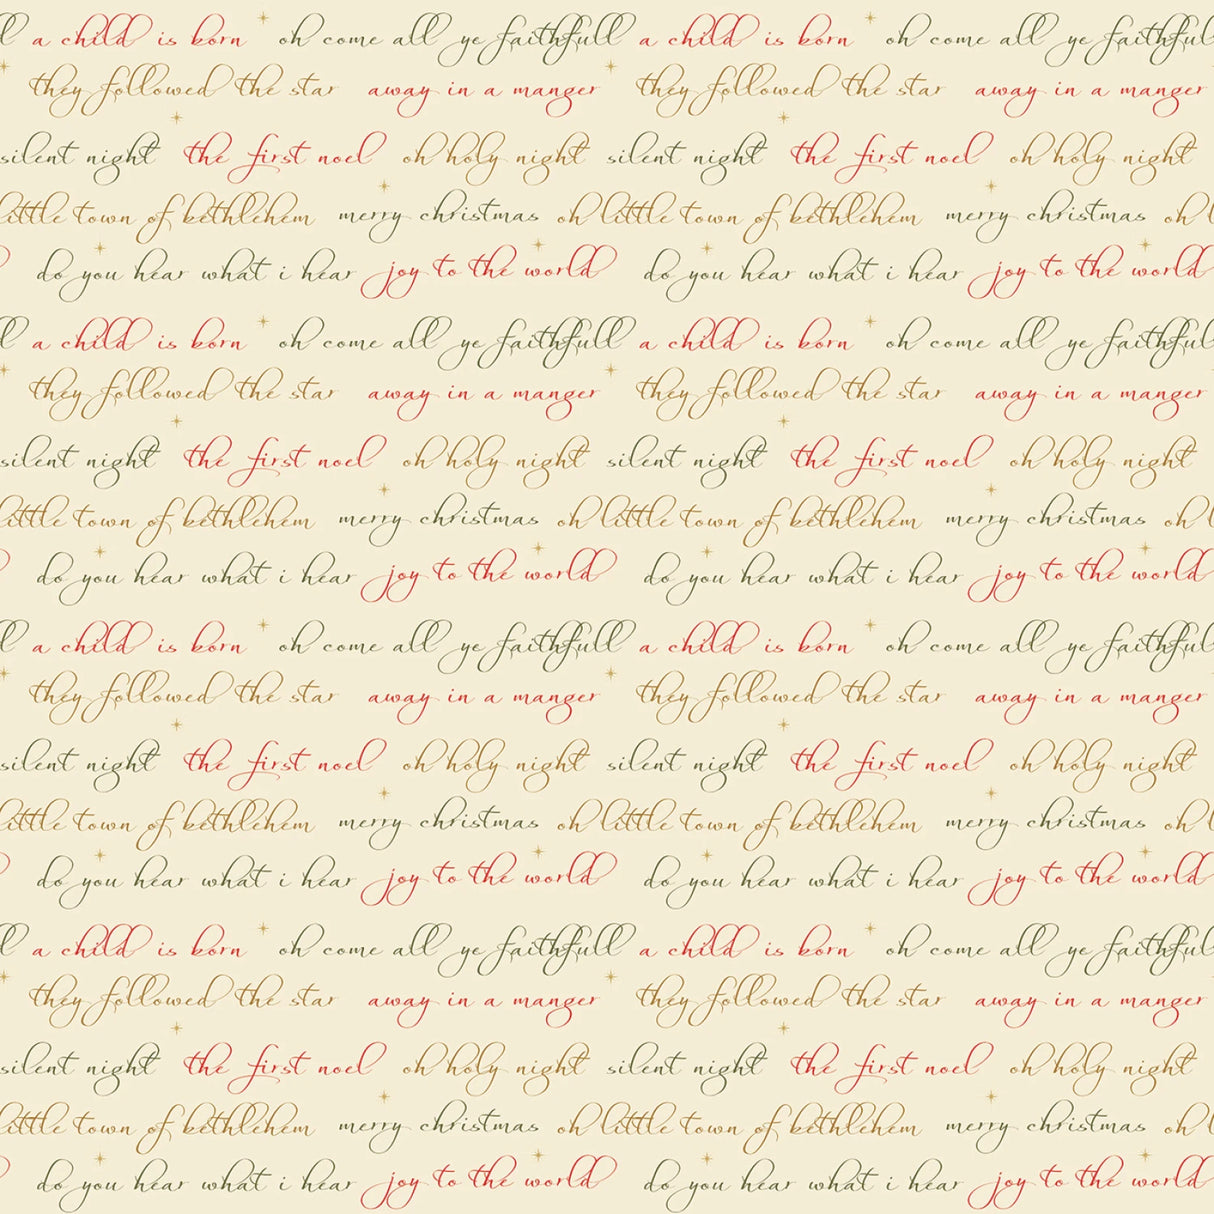 a child is born oh come all ye faithfull a child is born oh come all ye faithful
they followed the star away in a manger they followed the star away in a manger
silent night the first noel oh holy night silent night the first noel oh holy night
little town of bethlehem merry christmas oh little town of bethlehem merry christmas oh
do you hear what i hear joy to the world do you hear what i hear joy to the world
a child is born oh come all ye faithfull a child is born oh come all ye faithful
they followed the star away in a manger they followed the star away in a manger
silent night the first noel oh holy night silent night the first noel oh holy night
little town of bethlehem merry christmas oh little town of bethlehem merry christmas oh
do you hear what i hear joy to the world do you hear what i hear joy to the world
a child is born oh come all ye faithfull a child is born oh come all ye faithful
they followed the star away in a manger they followed the star away in a manger
silent night the first noel oh holy night silent night the first noel oh holy night
little town of bethlehem merry christmas oh little town of bethlehem merry christmas oh
do you hear what i hear joy to the world do you hear what i hear joy to the world
a child is born oh come all ye faithfull a child is born oh come all ye faithful
they followed the star away in a manger they followed the star away in a manger
silent night the first noel oh holy night silent night the first noel oh holy night
little town of bethlehem merry christmas oh little town of bethlehem merry christmas oh
do you hear what i hear joy to the world do you hear what i hear joy to the world